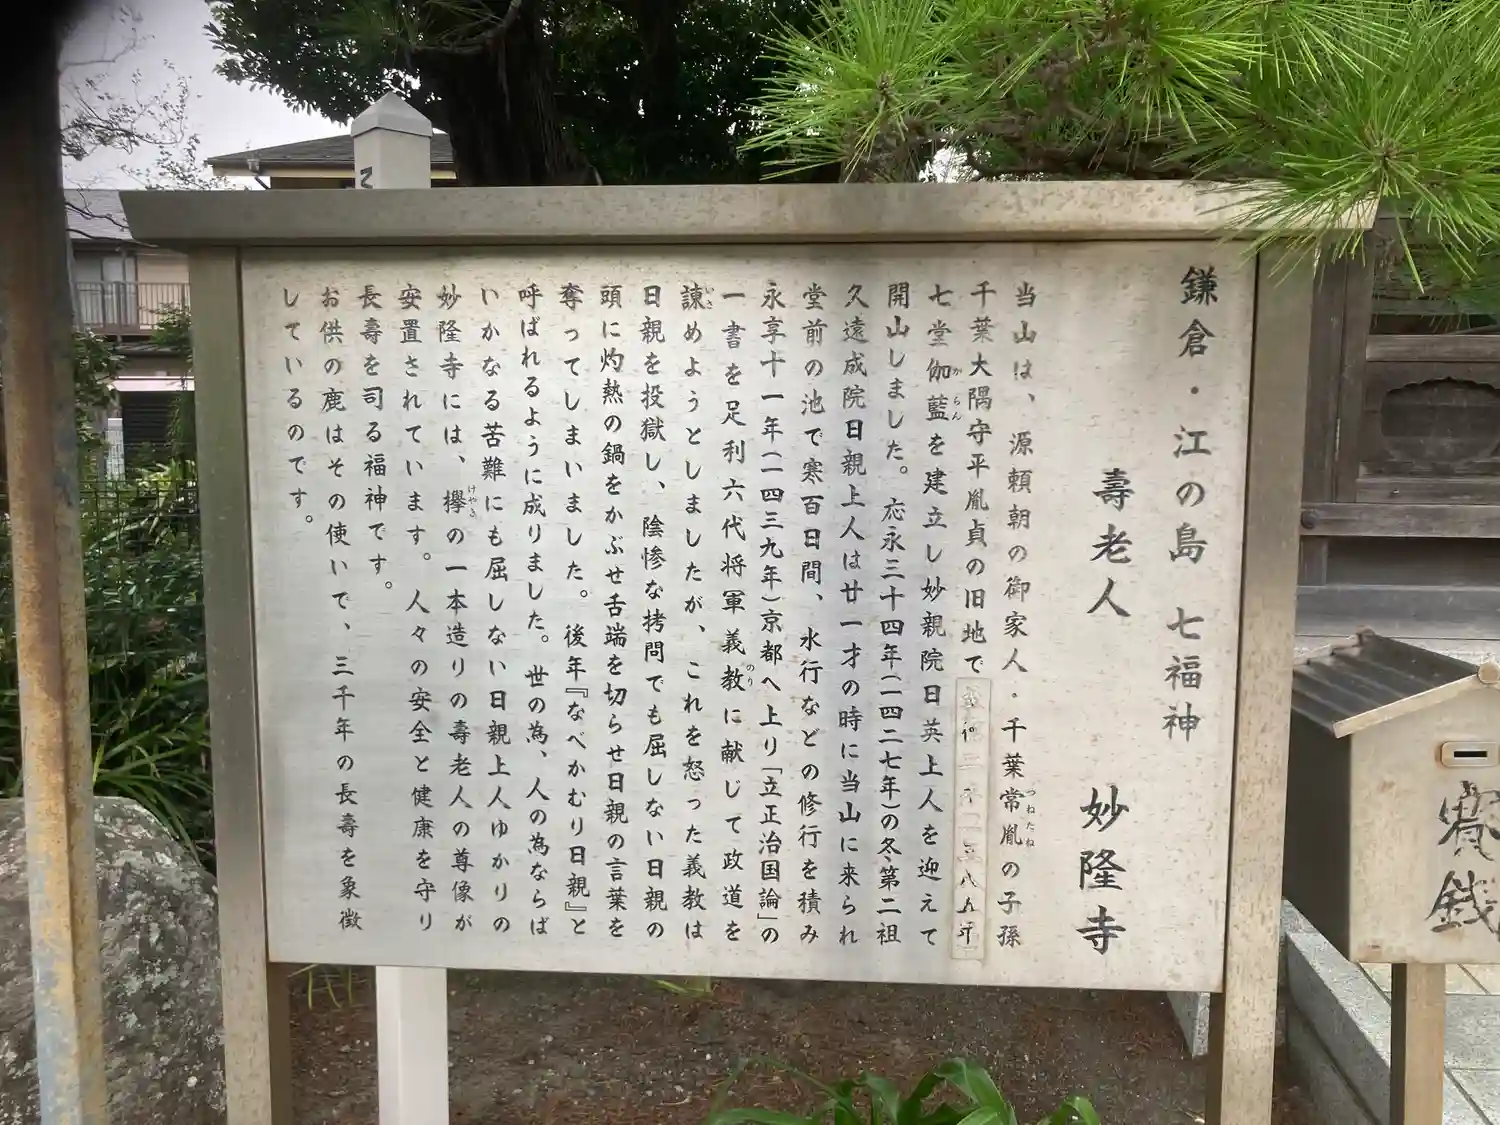 鎌倉・江の島 七福神
壽老人 妙隆寺
当山は、源頼朝の御家人・千葉常胤の子孫
つねたね
千葉大隅守平胤貞の旧地で
八五年
七堂伽藍を建立し妙親院日英上人を迎えて
がらん
開山しました。応永三十四年(一四二七年)の冬、第二祖
久遠成院日親上人は廿一才の時に当山に来られ
堂前の池で寒百日間、水行などの修行を積み
永享十一年(一四三九年)京都へ上り「立正治国論」の
一書を足利六代将軍義教に献じて政道を
のり
諌めようとしましたが、これを怒った義教は
いさ
日親を投獄し、陰惨な拷問でも屈しない日親の
頭に灼熱の鍋をかぶせ舌端を切らせ日親の言葉を
奪ってしまいました。後年『なべかむり日親』と
呼ばれるように成りました。世の為、人の為ならば
いかなる苦難にも屈しない日親上人ゆかりの
妙隆寺には、欅の一本造りの壽老人の尊像が
けやき
安置されています。人々の安全と健康を守り
長壽を司る福神です。
お供の鹿はその使いで、三千年の長壽を象徴
しているのです。
賽銭